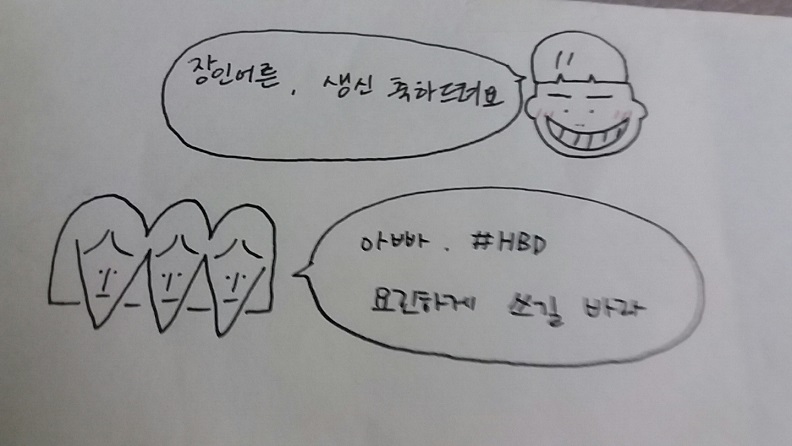 장인어른, 생신 축하드려요
아빠. #HBD
요긴하게 쓰길 바라